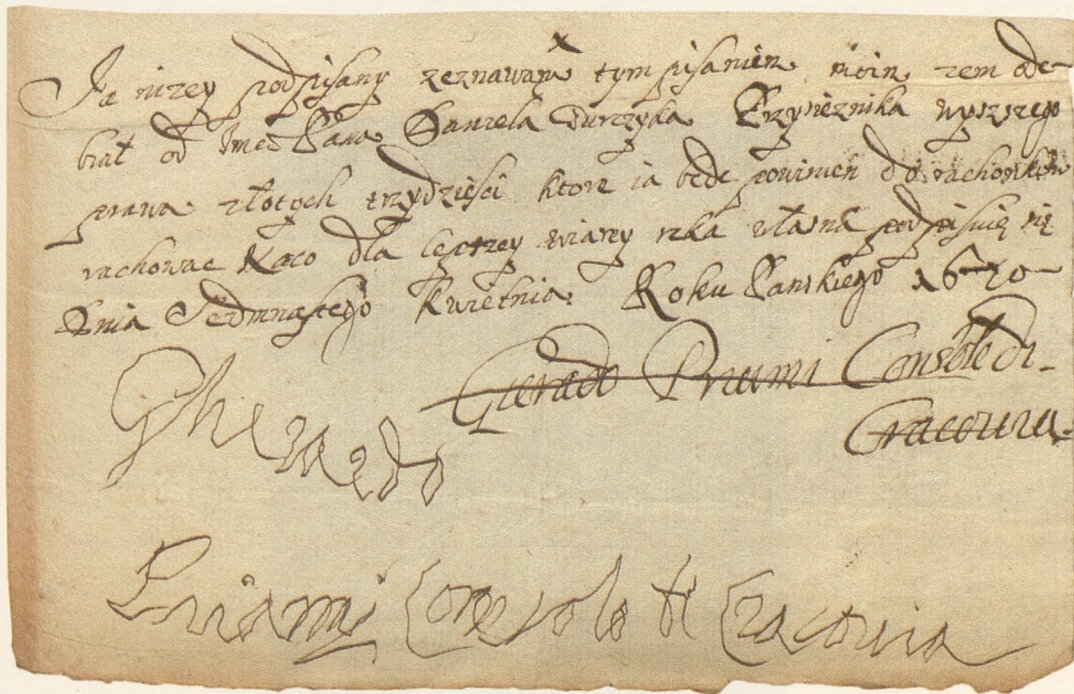 Ja nizey podpisany zeznawam tym pisaniem moim zem ode
brał od Jmci Pana Daniela Durczyka Przysieznika wyszszego
prawa złotych trzydziesci ktore ia bede powinien do rachonkow
rachowac Naco dla lepszey wiary reka własna podpisuię się
Dnia Siedmnastego Kwietnia Roku Panskiego 1670
Gierado Priami Console di
Cracouia
Gherardo
Priami Consolo di Cracouia